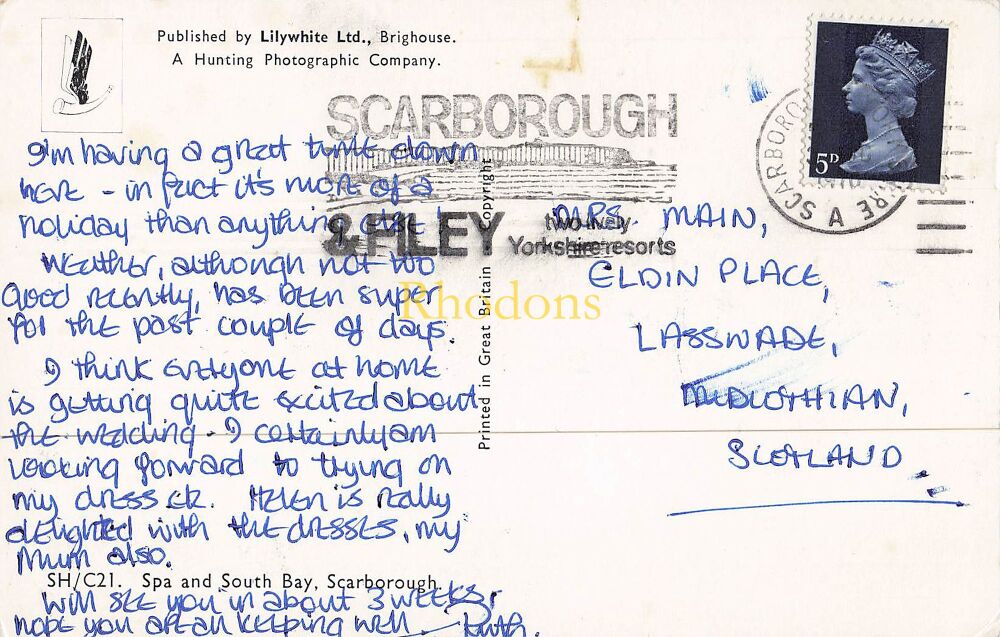 Published by Lilywhite Ltd., Brighouse.
A Hunting Photographic Company.
SCARBOROUGH
& FILEY two lovely
Yorkshire resorts
SCARBORO
RE A
5D
I'm having a great time down
here - in fact it's more of a
holiday than anything else!
Weather, although not too
good recently, has been super
for the past couple of days.
I think everyone at home
is getting quite excited about
the wedding - I certainly am
looking forward to trying on
my dress etc. Helen is really
delighted with the dresses, my
Mum also.
SH/C21. Spa and South Bay, Scarborough.
Will see you in about 3 weeks,
hope you are all keeping well - Ruth.
Printed in Great Britain Copyright
MRS. MAIN,
ELDIN PLACE,
LASSWADE,
MIDLOTHIAN,
SCOTLAND.
Rhodons